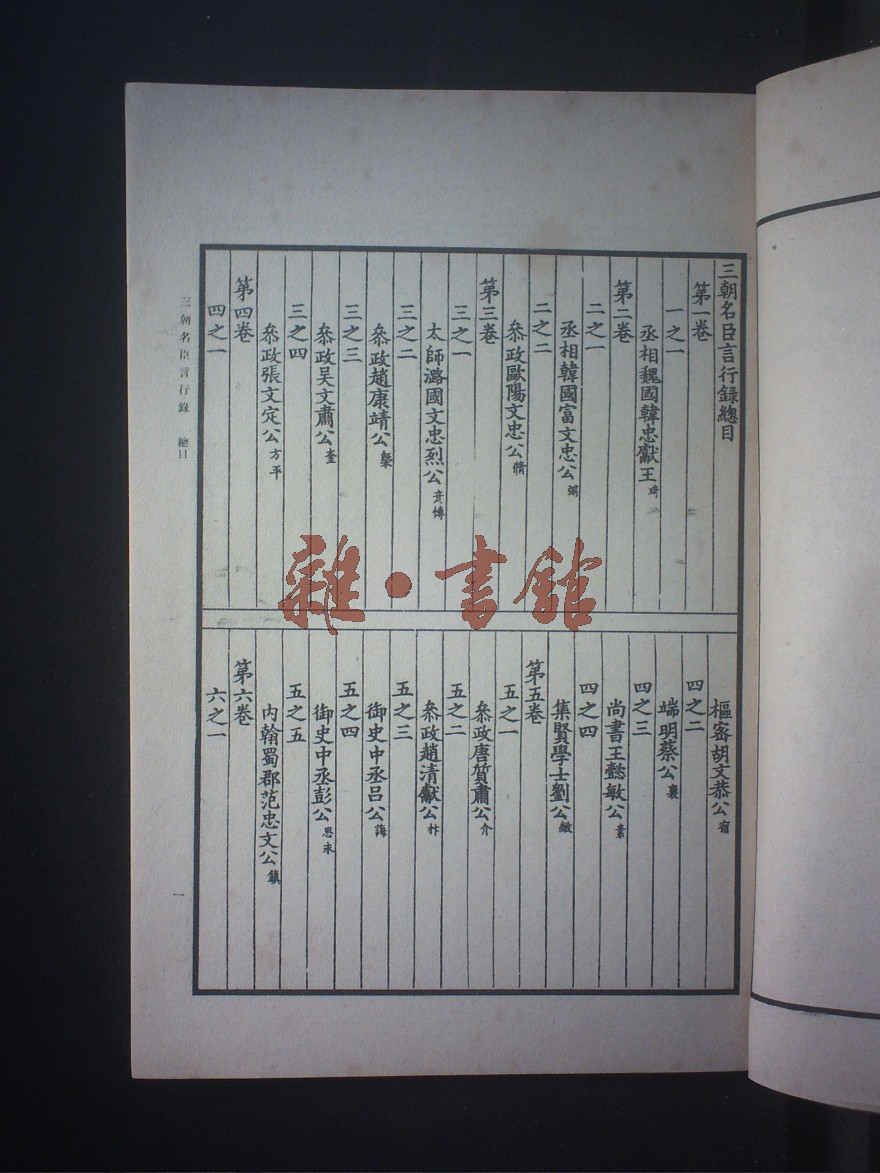 三朝名臣言行錄總目
第一卷
一之一
丞相魏國韓忠獻王 琦
第二卷
二之一
丞相韓國富文忠公 弼
二之二
叅政歐陽文忠公 脩
第三卷
三之一
太師潞國文忠烈公 彥博
三之二
叅政趙康靖公 槩
三之三
叅政吴文肅公 奎
三之四
叅政張文定公 方平
第四卷
四之一
樞宻胡文恭公 宿
四之二
端明蔡公 襄
四之三
尚書王懿敏公 素
四之四
集賢學士劉公 敞
第五卷
五之一
叅政唐質肅公 介
五之二
叅政趙清獻公 抃
五之三
御史中丞吕公 誨
五之四
御史中丞彭公 思永
五之五
内翰蜀郡范忠文公 鎮
第六卷
六之一
三朝名臣言行錄 總目
一
雜·書館